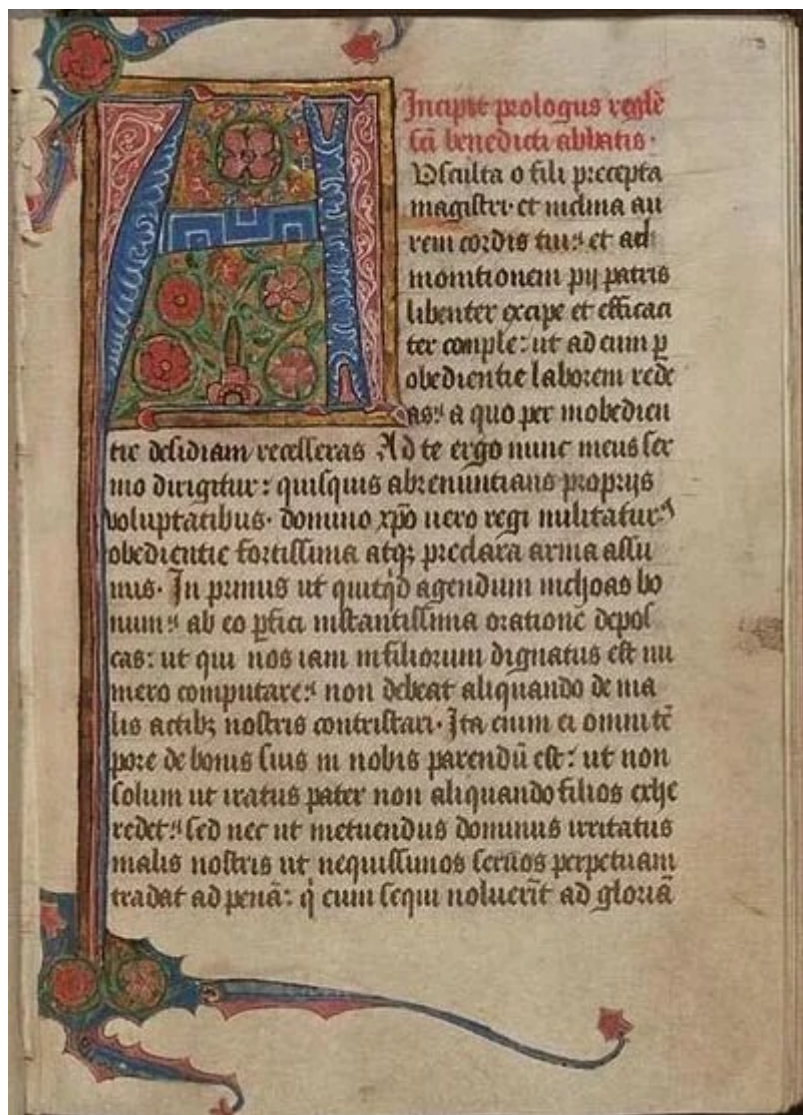 Incipit prologus reglē
scī benedicti abbatis·
Vsculta o fili precepta
magistri· et inclina au
rem cordis tui: et ad
monitionem pij patris
libenter excipe et efficaci
ter comple: ut ad eum ꝑ
obedientie laborem rede
as: a quo per inobedien
tie desidiam recesseras Ad te ergo nunc meus ser
mo dirigitur: quisquis abrenuntians proprijs
voluptatibus· domino xp̄o uero regi militatur᷒
obedientie fortissima atqꝫ preclara arma assu
mis· In primis ut quitq̇d agendum inchoas bo
num: ab eo ꝑfici instantissima oratione depos
cas: ut qui nos iam in filiorum dignatus est nu
mero computare: non debeat aliquando de ma
lis actibꝫ nostris contristari· Ita enim ei omni tē
pore de bonis suis in nobis parendū est: ut non
solum ut iratus pater non aliquando filios exhe
redet: sed nec ut metuendus dominus irritatus
malis nostris ut nequissimos seruos perpetuam
tradat ad penā: q̇ eum sequi noluerīt ad gloriā